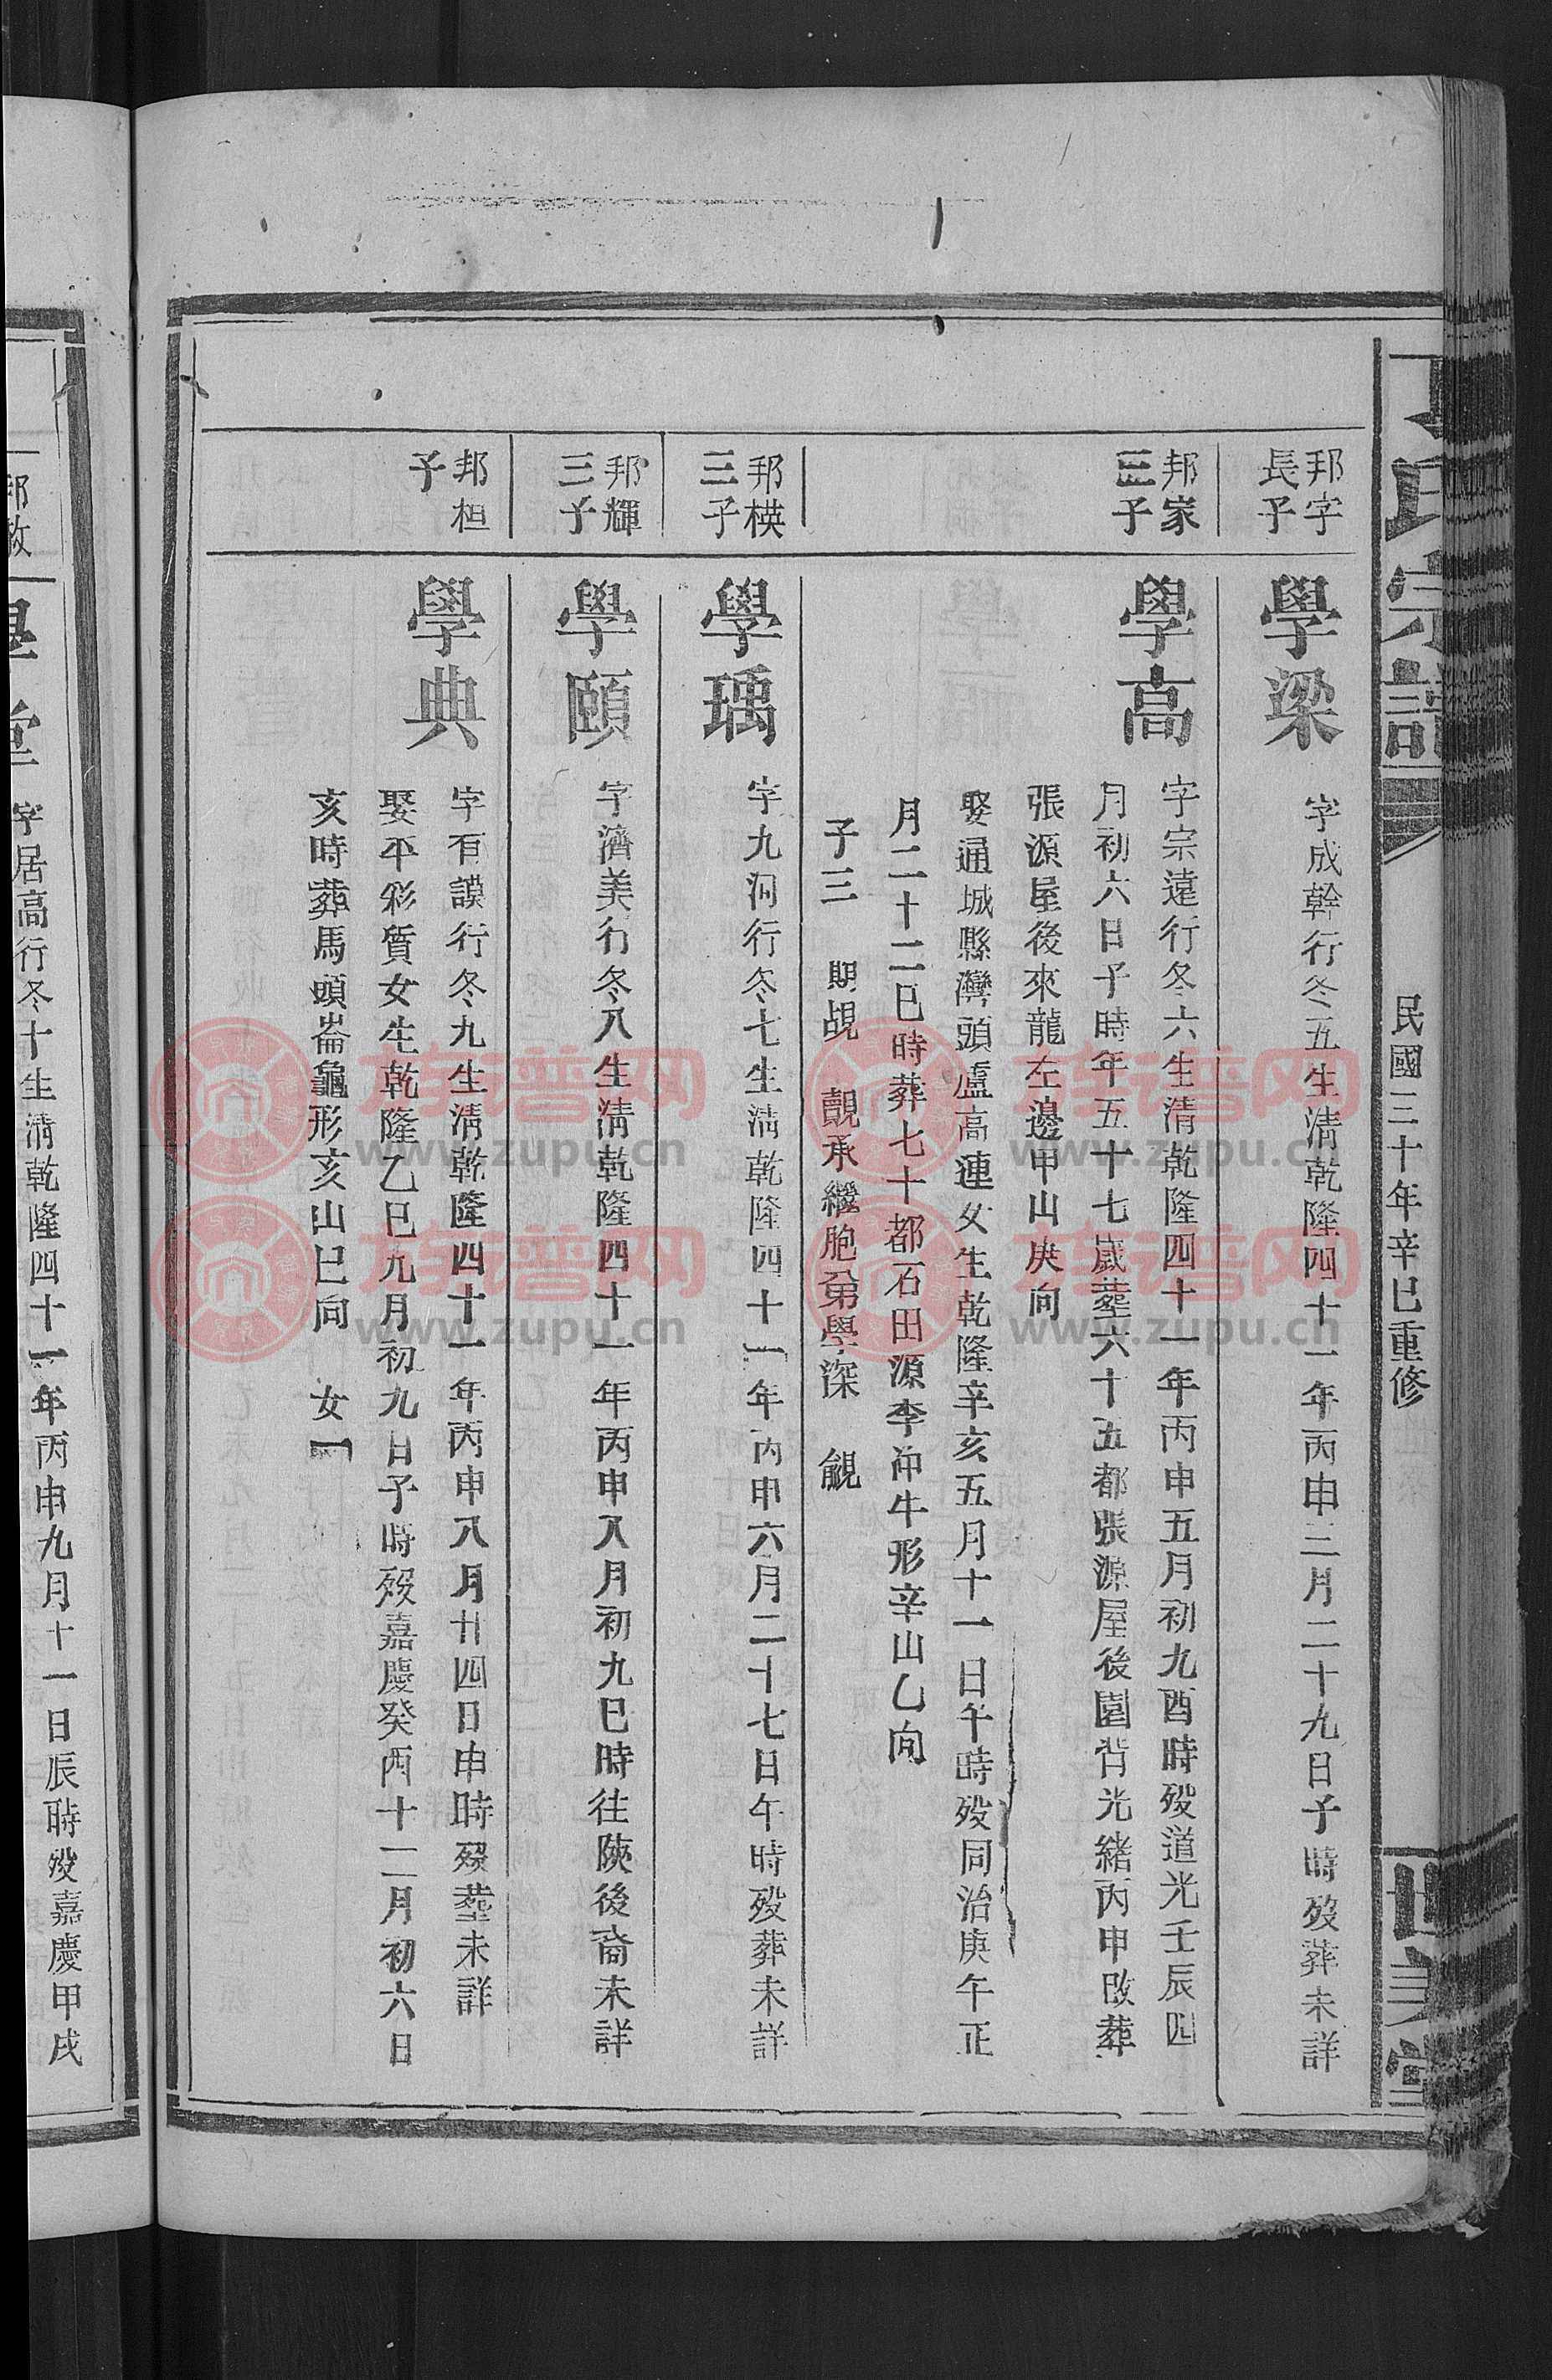 氏宗譜
民國三十年辛巳重修
世美堂
邦字
長子
學梁
字成幹行冬五生清乾隆四十一年丙申三月二十九日子時歿葬未詳
邦家
三子
學高
字宗遠行冬六生清乾隆四十一年丙申五月初九酉時歿道光壬辰四
月初六日子時年五十七歲葬六十五都張源屋後園背光緒丙申改葬
張源屋後來龍左邊甲山庚向
娶通城縣灣頭盧高連女生乾隆辛亥五月十一日午時歿同治庚午正
月二十二巳時葬七十都石田源李冲牛形辛山乙向
子三 覥 覩承繼胞弟學深
邦模
三子
學瑀
字九河行冬七生清乾隆四十一年丙申六月二十七日午時歿葬未詳
邦輝
三子
學頤
字濟美行冬八生清乾隆四十一年丙申八月初九巳時往陝後裔未詳
邦桓
子
學典
字有謨行冬九生清乾隆四十一年丙申八月廿四日申時歿葬未詳
娶平彩質女生乾隆乙巳九月初九日子時歿嘉慶癸酉十二月初六日
亥時葬馬頭崙龜形亥山巳向 女一
邦敖
學堂
字居高行冬十生清乾隆四十一年丙申九月十一日辰時歿嘉慶甲戌
族谱网
www.zupu.cn
族谱网
www.zupu.cn
族谱网
www.zupu.cn
族谱网
www.zupu.cn